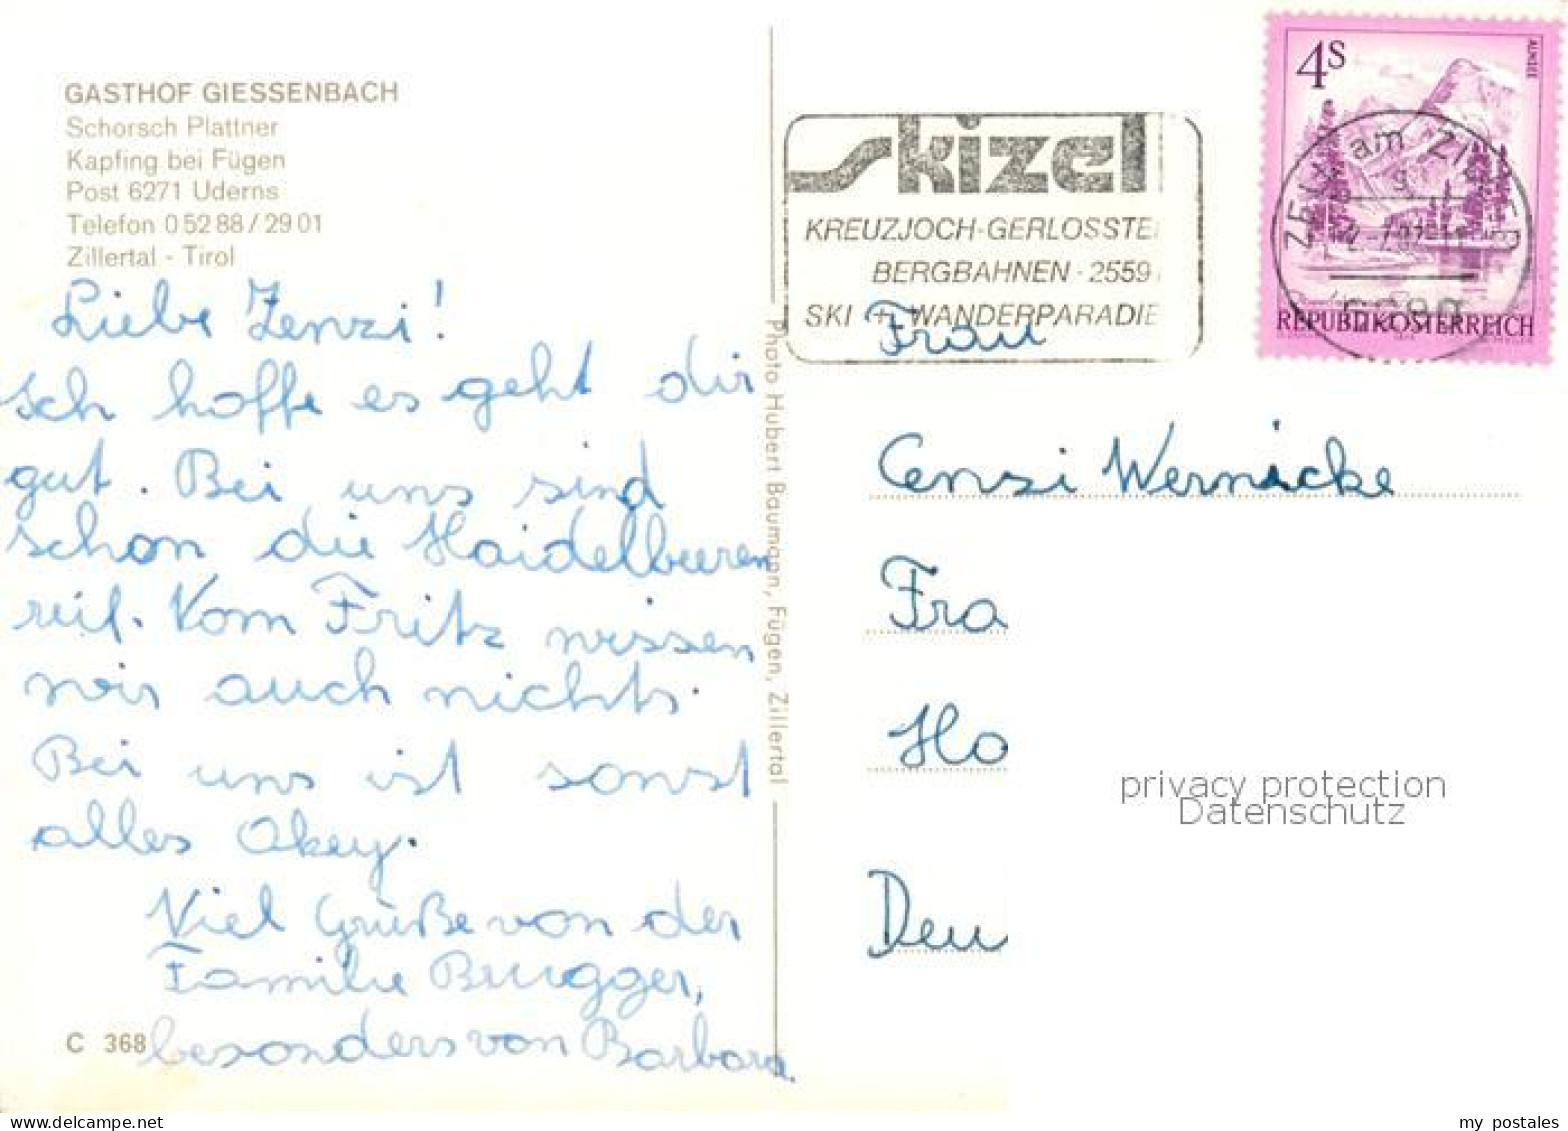 GASTHOF GIESSENBACH
Schorsch Plattner
Kapfing bei Fügen
Post 6271 Uderns
Telefon 0 52 88 / 29 01
Zillertal - Tirol
Liebe Zenzi!
Ich hoffe es geht dir
gut. Bei uns sind
schon die Haidelbeeren
reif. Vom Fritz wissen
wir auch nichts.
Bei uns ist sonst
alles Okey.
Viel Grüße von der
Familie Brugger,
besonders von Barbara.
C 368
Photo Hubert Baumann, Fügen, Zillertal
skizel
KREUZJOCH-GERLOSSTE
BERGBAHNEN - 2559
SKI + WANDERPARADIE
4S
ALMSEE
ZELL am ZILLER
6280
REPUBLIK ÖSTERREICH
Frau
Cenzi Wernicke
Fra
Ho
Deu
privacy protection
Datenschutz
my postales